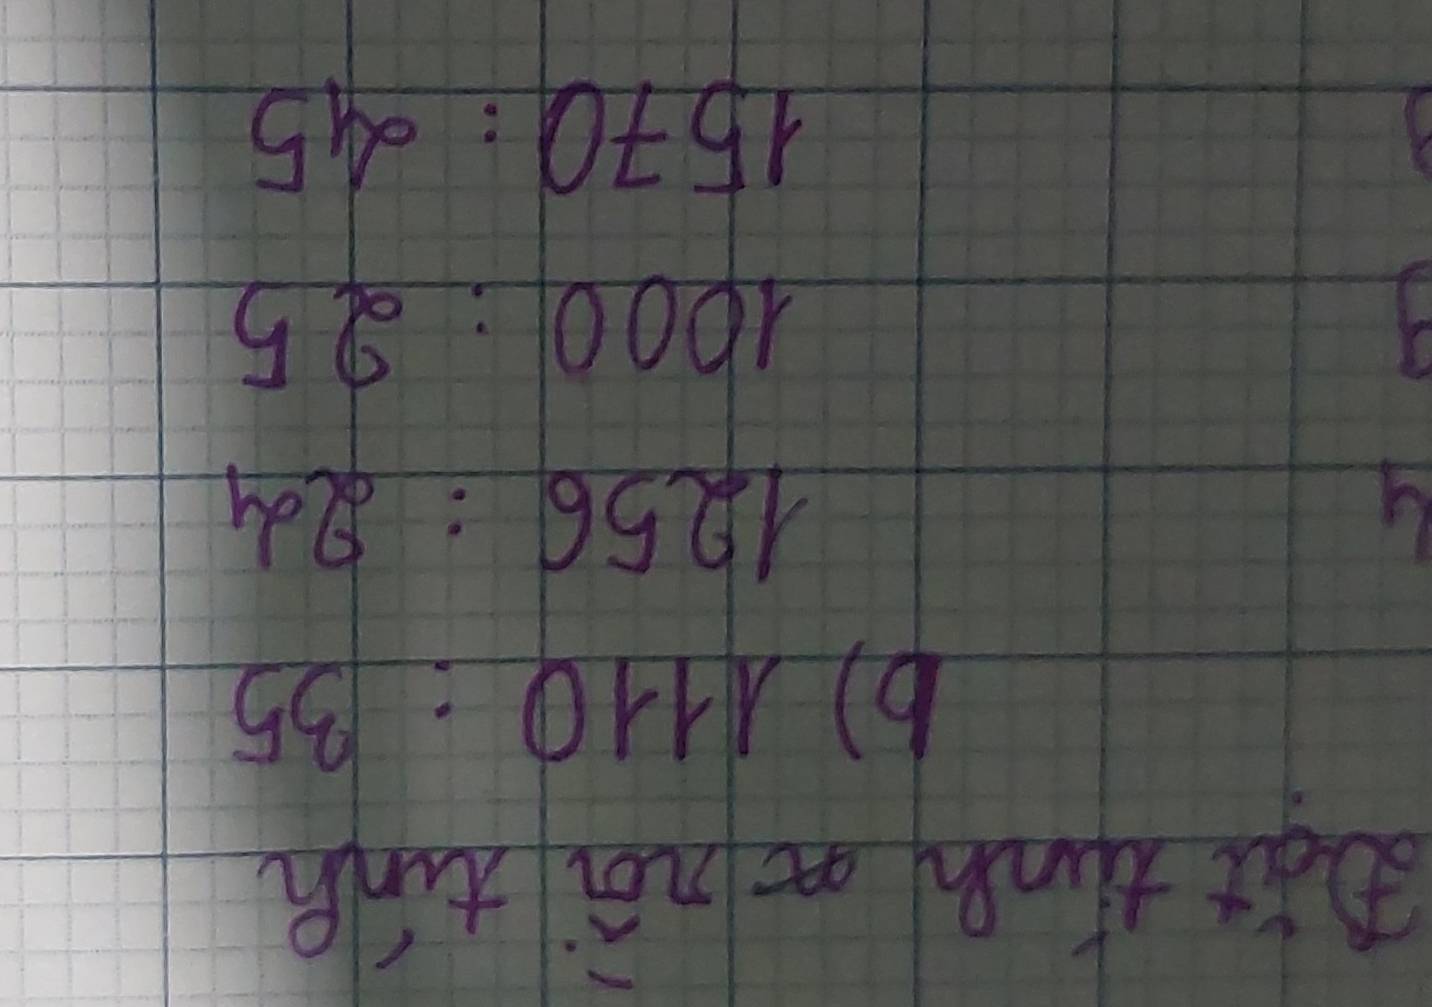 Đặt tính rồi tính
b) 1110 : 35
1256 : 24
1000 : 25
1570 : 45